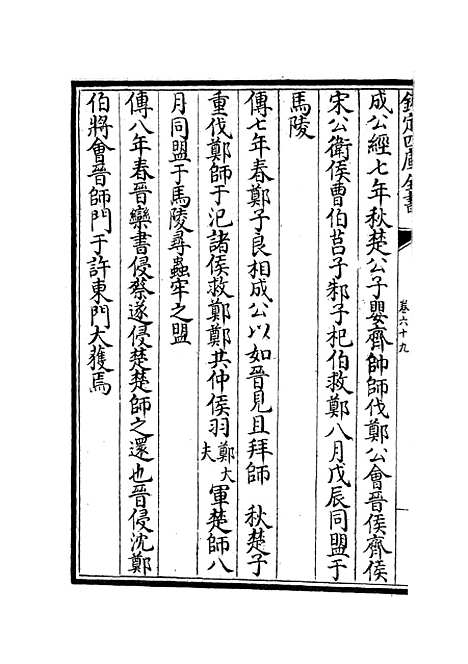 欽定四庫全書
卷六十九
成公經七年秋楚公子嬰齊帥師伐鄭公會晉侯齊侯
宋公衛侯曹伯莒子邾子杞伯救鄭八月戊辰同盟于
馬陵
傳七年春鄭子良相成公以如晉見且拜師　秋楚子
重伐鄭師于氾諸侯救鄭鄭共仲侯羽鄭大夫軍楚師八
月同盟于馬陵尋蟲牢之盟
傳八年春晉欒書侵蔡遂侵楚楚師之還也晉侵沈鄭
伯將會晉師門于許東門大獲焉